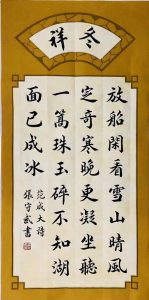 冬祥
放船閑看雪山晴風
定奇寒晚更凝坐聽
一篙珠玉碎不知湖
面已成冰
范成大詩
張守武書